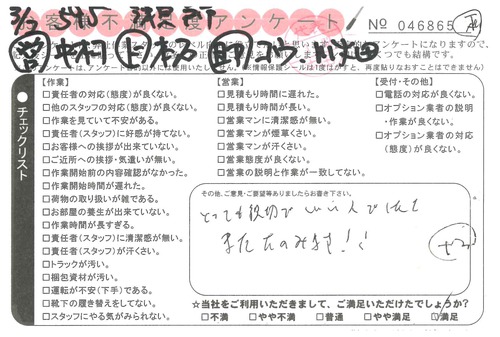 お客様不満足度アンケート
No 046865
チェックリスト
【作業】
□責任者の対応(態度)が良くない。
□他のスタッフの対応(態度)が良くない。
□作業を見ていて不安がある。
□責任者(スタッフ)に好感が持てない。
□お客様への挨拶が出来ていない。
□ご近所への挨拶・気遣いが無い。
□作業開始前の内容確認がなかった。
□作業開始時間が遅れた。
□荷物の取り扱いが雑である。
□お部屋の養生が出来ていない。
□作業時間が長すぎる。
□責任者(スタッフ)に清潔感が無い。
□責任者(スタッフ)が汗くさい。
□トラックが汚い。
□梱包資材が汚い。
□運転が不安(下手)である。
□靴下の履き替えをしてない。
□スタッフにやる気がみられない。
【営業】
□見積もり時間に遅れた。
□見積もり時間が長い。
□営業マンに清潔感が無い。
□営業マンが煙草くさい。
□営業マンが汗くさい。
□営業態度が良くない。
□営業の説明と作業が一致してない。
【受付・その他】
□電話の対応が良くない。
□オプション業者の説明・作業が良くない。
□オプション業者の対応(態度)が良くない。
その他、ご意見・ご要望等ありましたらお書き下さい。
とっても親切でいい人でした
またたのみます!!
☆当社をご利用いただきまして、ご満足いただけたでしょうか?
□不満 □やや不満 □普通 □やや満足 □満足